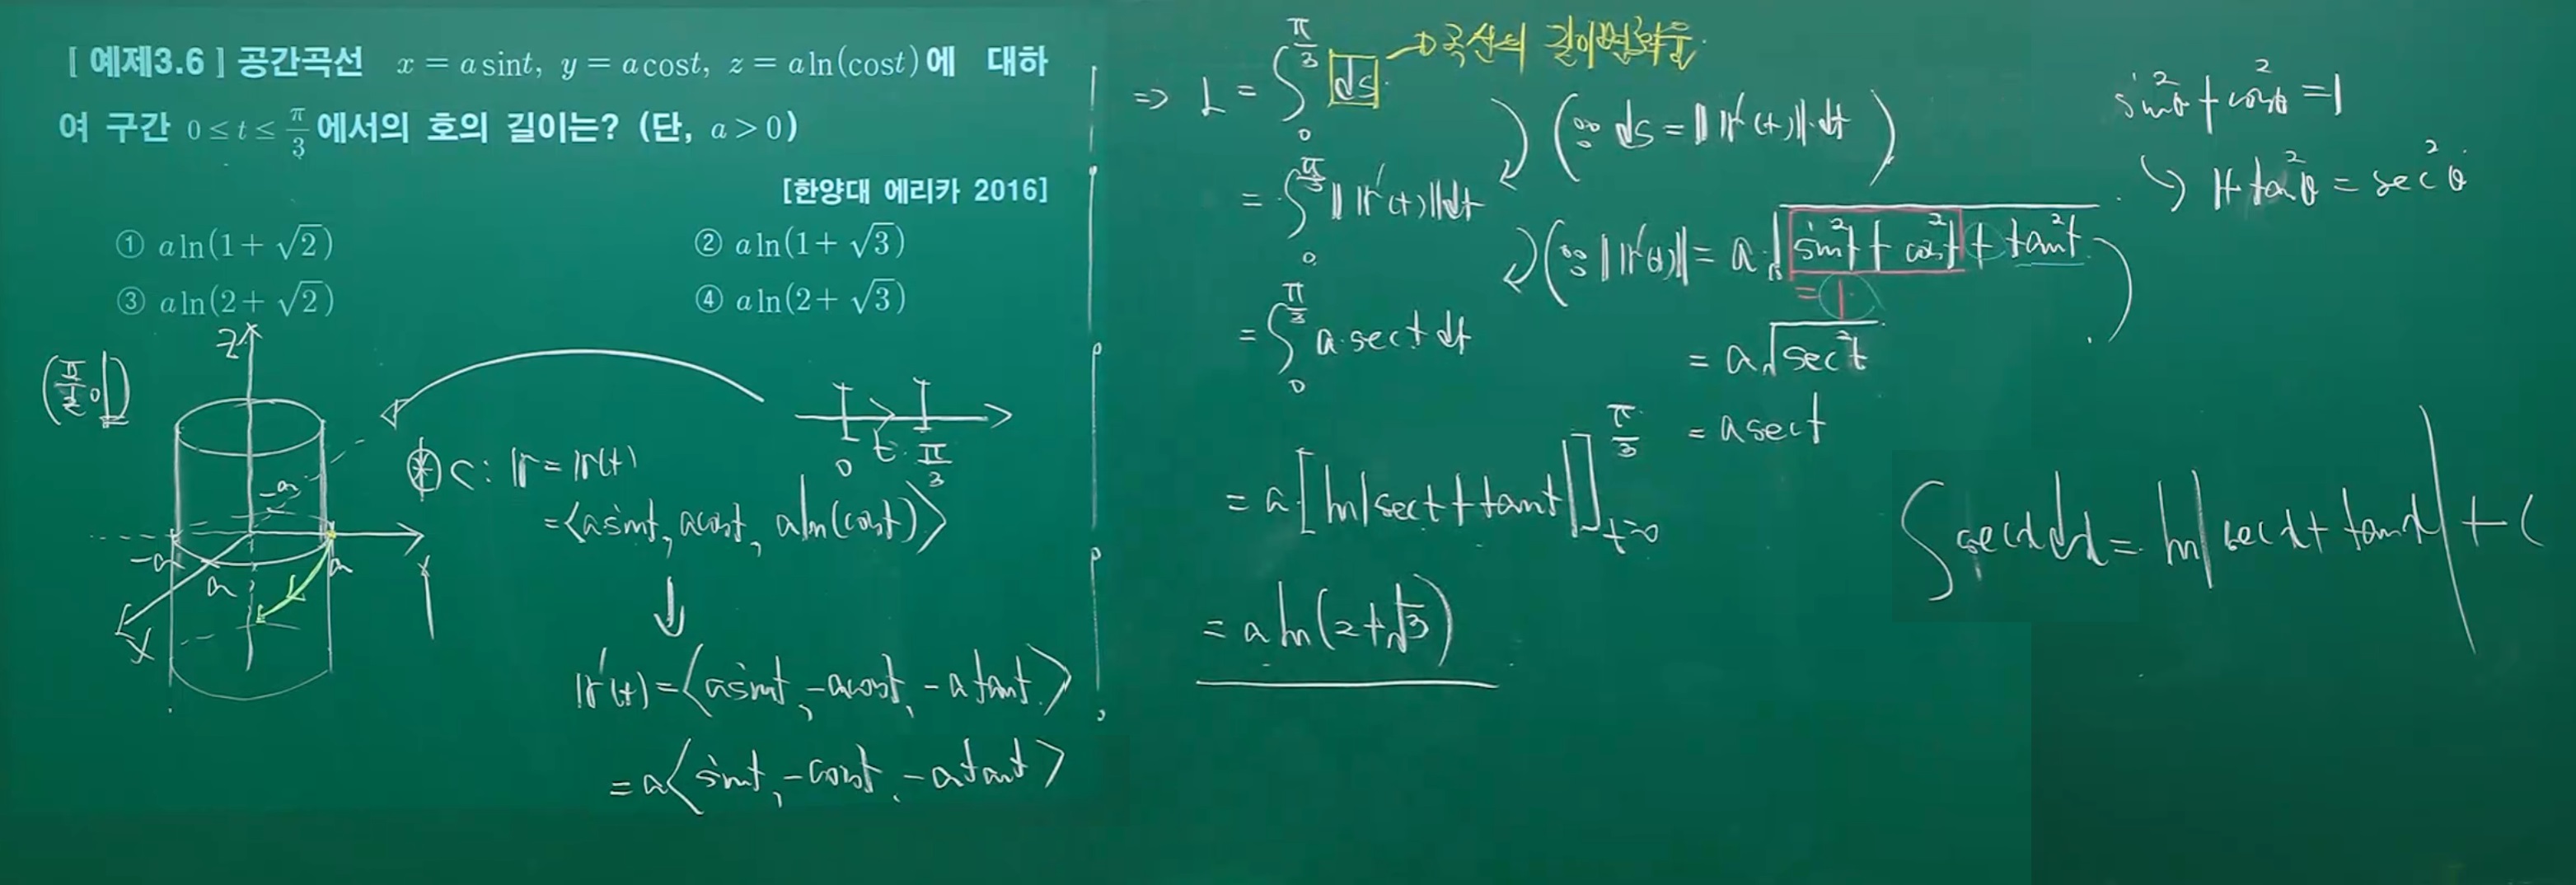 [ 예제3.6 ] 공간곡선 x = a sint, y = a cost, z = a ln(cost)에 대하
여 구간 0 ≤ t ≤ π/3 에서의 호의 길이는? (단, a > 0)
[한양대 에리카 2016]
① a ln(1+ √2)
② a ln(1+ √3)
③ a ln(2+ √2)
④ a ln(2+ √3)
z
-a
-a
a
a
x
y
0 t π/3
⊛ C: r = r(t)
=<asint, acost, aln(cost)>
↓
r'(t) = <asint, -acost, -atant>
= a<sint, -cost, -atant>
⇒ L = ∫₀^(π/3) ds → 곡선의 길이변화율
(∵ ds = ||r'(t)||·dt)
= ∫₀^(π/3) ||r'(t)||dt
(∵ ||r'(t)|| = a·√(sin²t + cos²t + tan²t)
= 1
= ∫₀^(π/3) a·sect dt
= a√(sec²t)
= asect
= a[ln|sect+tant|]_(t=0)^(π/3)
= a ln(2+√3)
sin²θ + cos²θ = 1
↳ 1+tan²θ = sec²θ
∫secx dx = ln|secx+tanx| + C